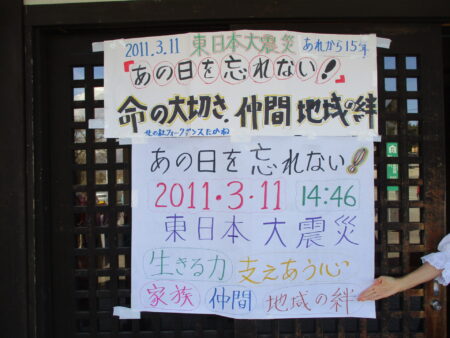 2011.3.11 東日本大震災 あれから15年
「あの日を忘れない!」
命の大切さ、仲間 地域の絆
フォークダンスたかね
あの日を忘れない!!
2011・3・11 14:46
東日本大震災
生きる力 支えあう心
家族 仲間 地域の絆